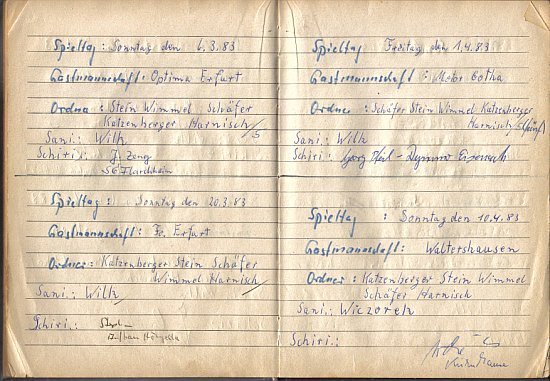 Spieltag: Sonntag den 6.3.83
Gastmannschaft: Optima Erfurt
Ordner: Stein Wimmel Schäfer
Katzenberger Harnisch/5
Sani: Wilk
Schiri: J. Zeng
SG Flarchheim
Spieltag: Sonntag den 20.3.83
Gastmannschaft: Fe. Erfurt
Ordner: Katzenberger Stein Schäfer
Wimmel Harnisch/
Sani.: Wilk/
Schiri.:
Spieltag Freitag den 1.4.83
Gastmannschaft: Motor Gotha
Ordner: Schäfer Stein Wimmel Katzenberger
Harnisch/5 (fünf)
Sani.: Wilk
Schiri: Georg - Dynamo Eisenach
Spieltag: Sonntag den 10.4.83
Gastmannschaft: Waltershausen
Ordner: Katzenberger Stein Wimmel
Schäfer Harnisch
Sani: Wiczorek
Schiri.: